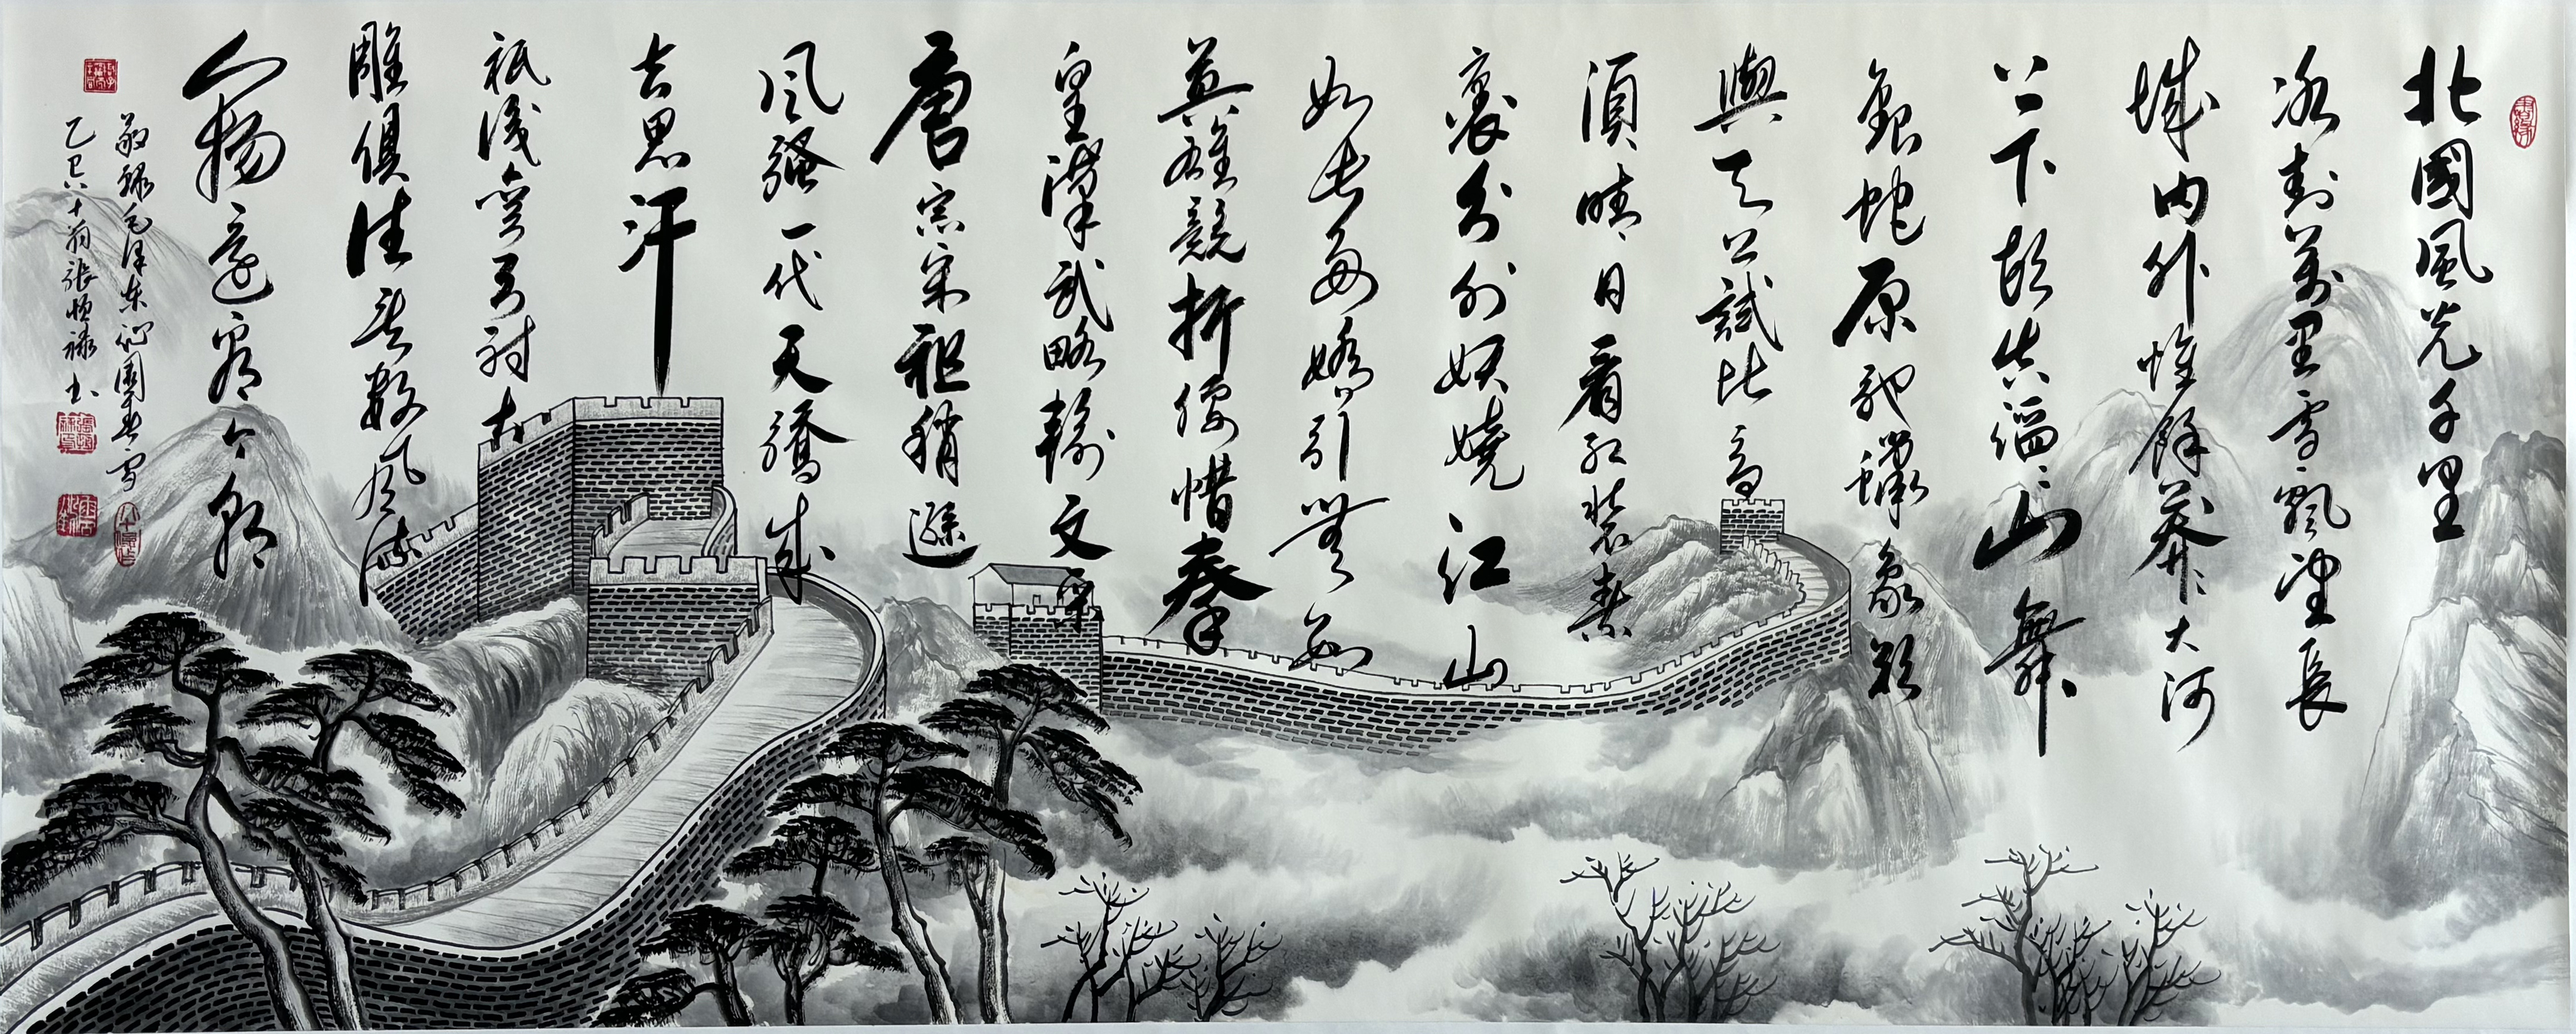 北國風光千里
冰封萬里雪飄望長
城内外惟餘莽〻大河
上下頓失滔〻山舞
銀蛇原馳蠟象欲
與天公試比高
須晴日看红裝素
裹分外妖嬈江山
如此多嬌引無數
英雄競折腰惜秦
皇漢武略輸文采
唐宗宋祖稍遜
风騷一代天驕成
吉思汗
祇識彎弓射大
雕俱往矣數风流
人物還看今朝
敬録毛泽东沁園春雪
乙巳八十翁張恒禄书